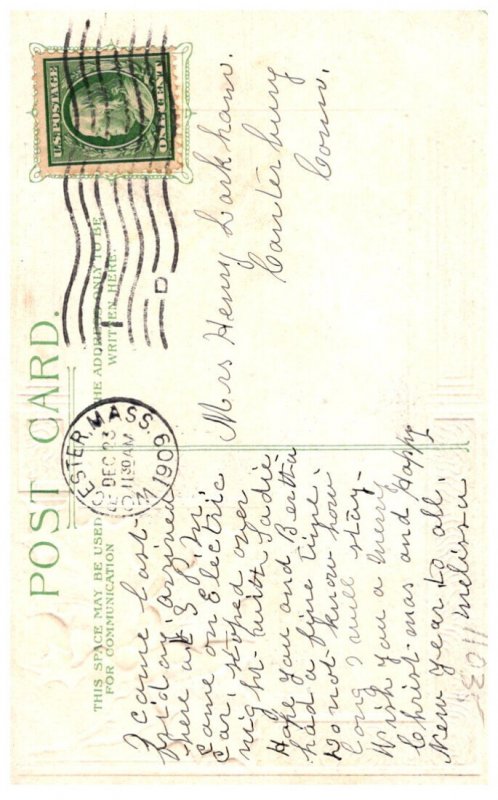 POST CARD.
THIS SPACE MAY BE USED
FOR COMMUNICATION
THE ADDRESS ONLY TO BE
WRITTEN HERE.
U.S. POSTAGE
ONE CENT
WORCESTER, MASS.
DEC 23
11 30 AM
1909
D
I came last
Friday. arrived
here at 8 P.M.
Came on Electric
Car, stoped over
night with Sadie-
Hope you and Bertha
had a fine time.
Do not know how
long I will stay-
Wish you a merry
Christ-mas and Happy
New year to all.
Melissa
Mrs Henry Larkham.
Canterbury
Conn.